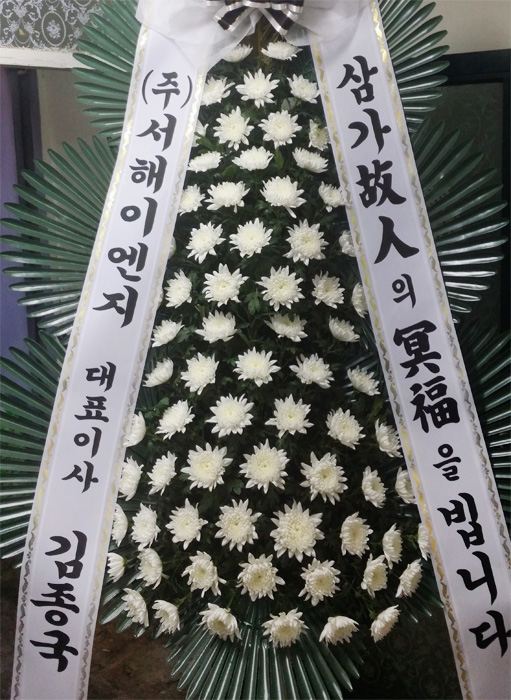 (주)서해이엔지 대표이사 김종국
삼가故人의 冥福을 빕니다